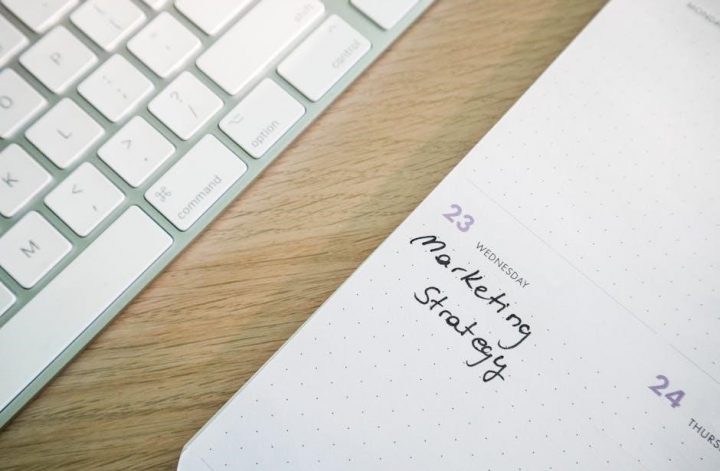 shift
P
:
;
"
'
control
O
L
?
/
option
K
>
.
⌘
command
<
,
M
MONDAY
23
WEDNESDAY
Marketing
Strategy
24
THURS